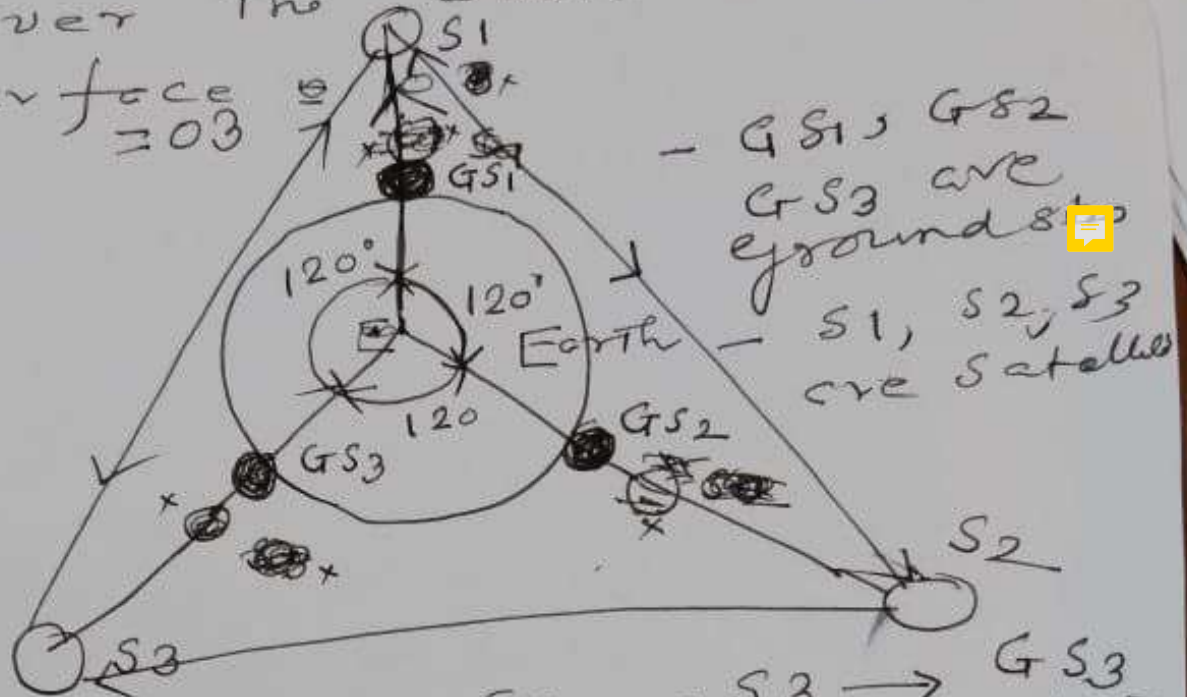 ver The
S1
face
=03
GS1
- GS1, GS2
GS3 are
ground
120°
120°
E
Earth
120
- S1, S2, S3
are Satellites
GS2
GS3
S2
S3
S3 → GS3